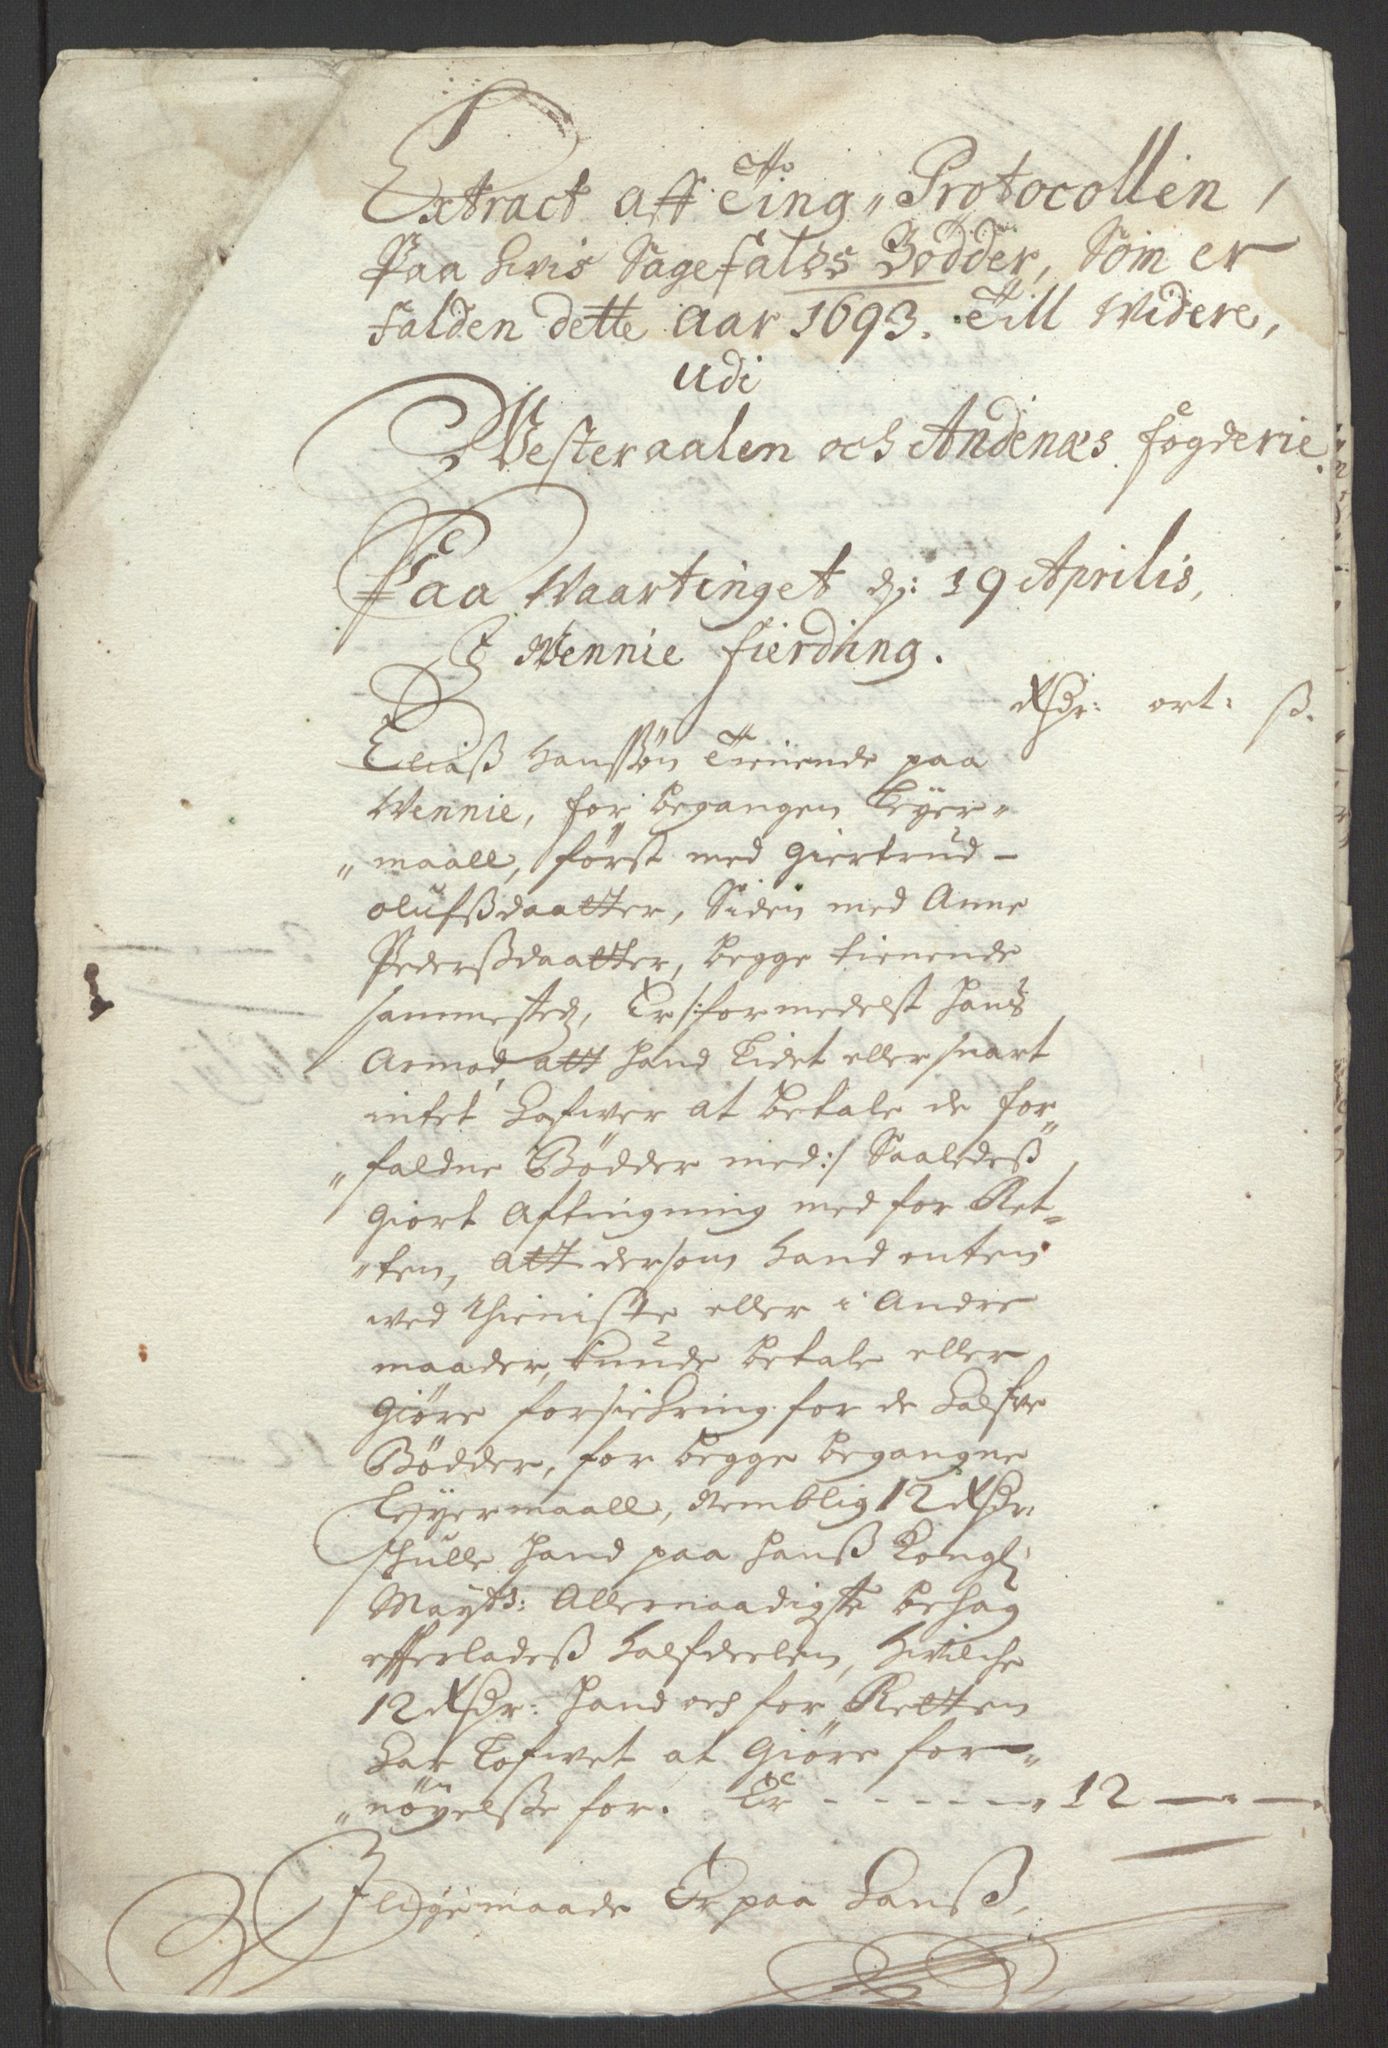 Extract aff Ting„Protocollen,
Paa hvis Sagefalds Bødder, Som er
falden dette aar 1693. Till Widere,
udi
Westeraalen och Andenæs fogderie.
Paa Waartinget d: 19 Aprilis,
I Wennie fierding.
Rdr: ort: ß.
Eliaß Hanssøn Tienende paa
Wennie, for begangen Leyer„
„maall, først med Giertrud
olufsdaatter, Siden med Anne
Pederßdaatter, begge tienende
sammested, Er /:formedelst hans
Armod, att hand Lidet eller snart
intet hafwer at betale de for„
„faldne Bødder med:/ Saaledeß
giort Aftingning med for Ret„
„ten, att dersom hand enten
wed thieniste eller i Andre
maader, kunde betale eller
giøre forsichring for de halfve
Bødder, for begge begangne
Leyermaall, Nemblig 12 Rdr:
schulle hand paa hanß Kongl:
Mayts: Allernaadigste behag
efterladeß halfdeelen, hvilche
12 Rdr: hand och for Retten
har Lofwet at giøre for„
„nøyelße for. Er - - - - - „ 12 — „ — „
I ligemaade Er paa Hanß,